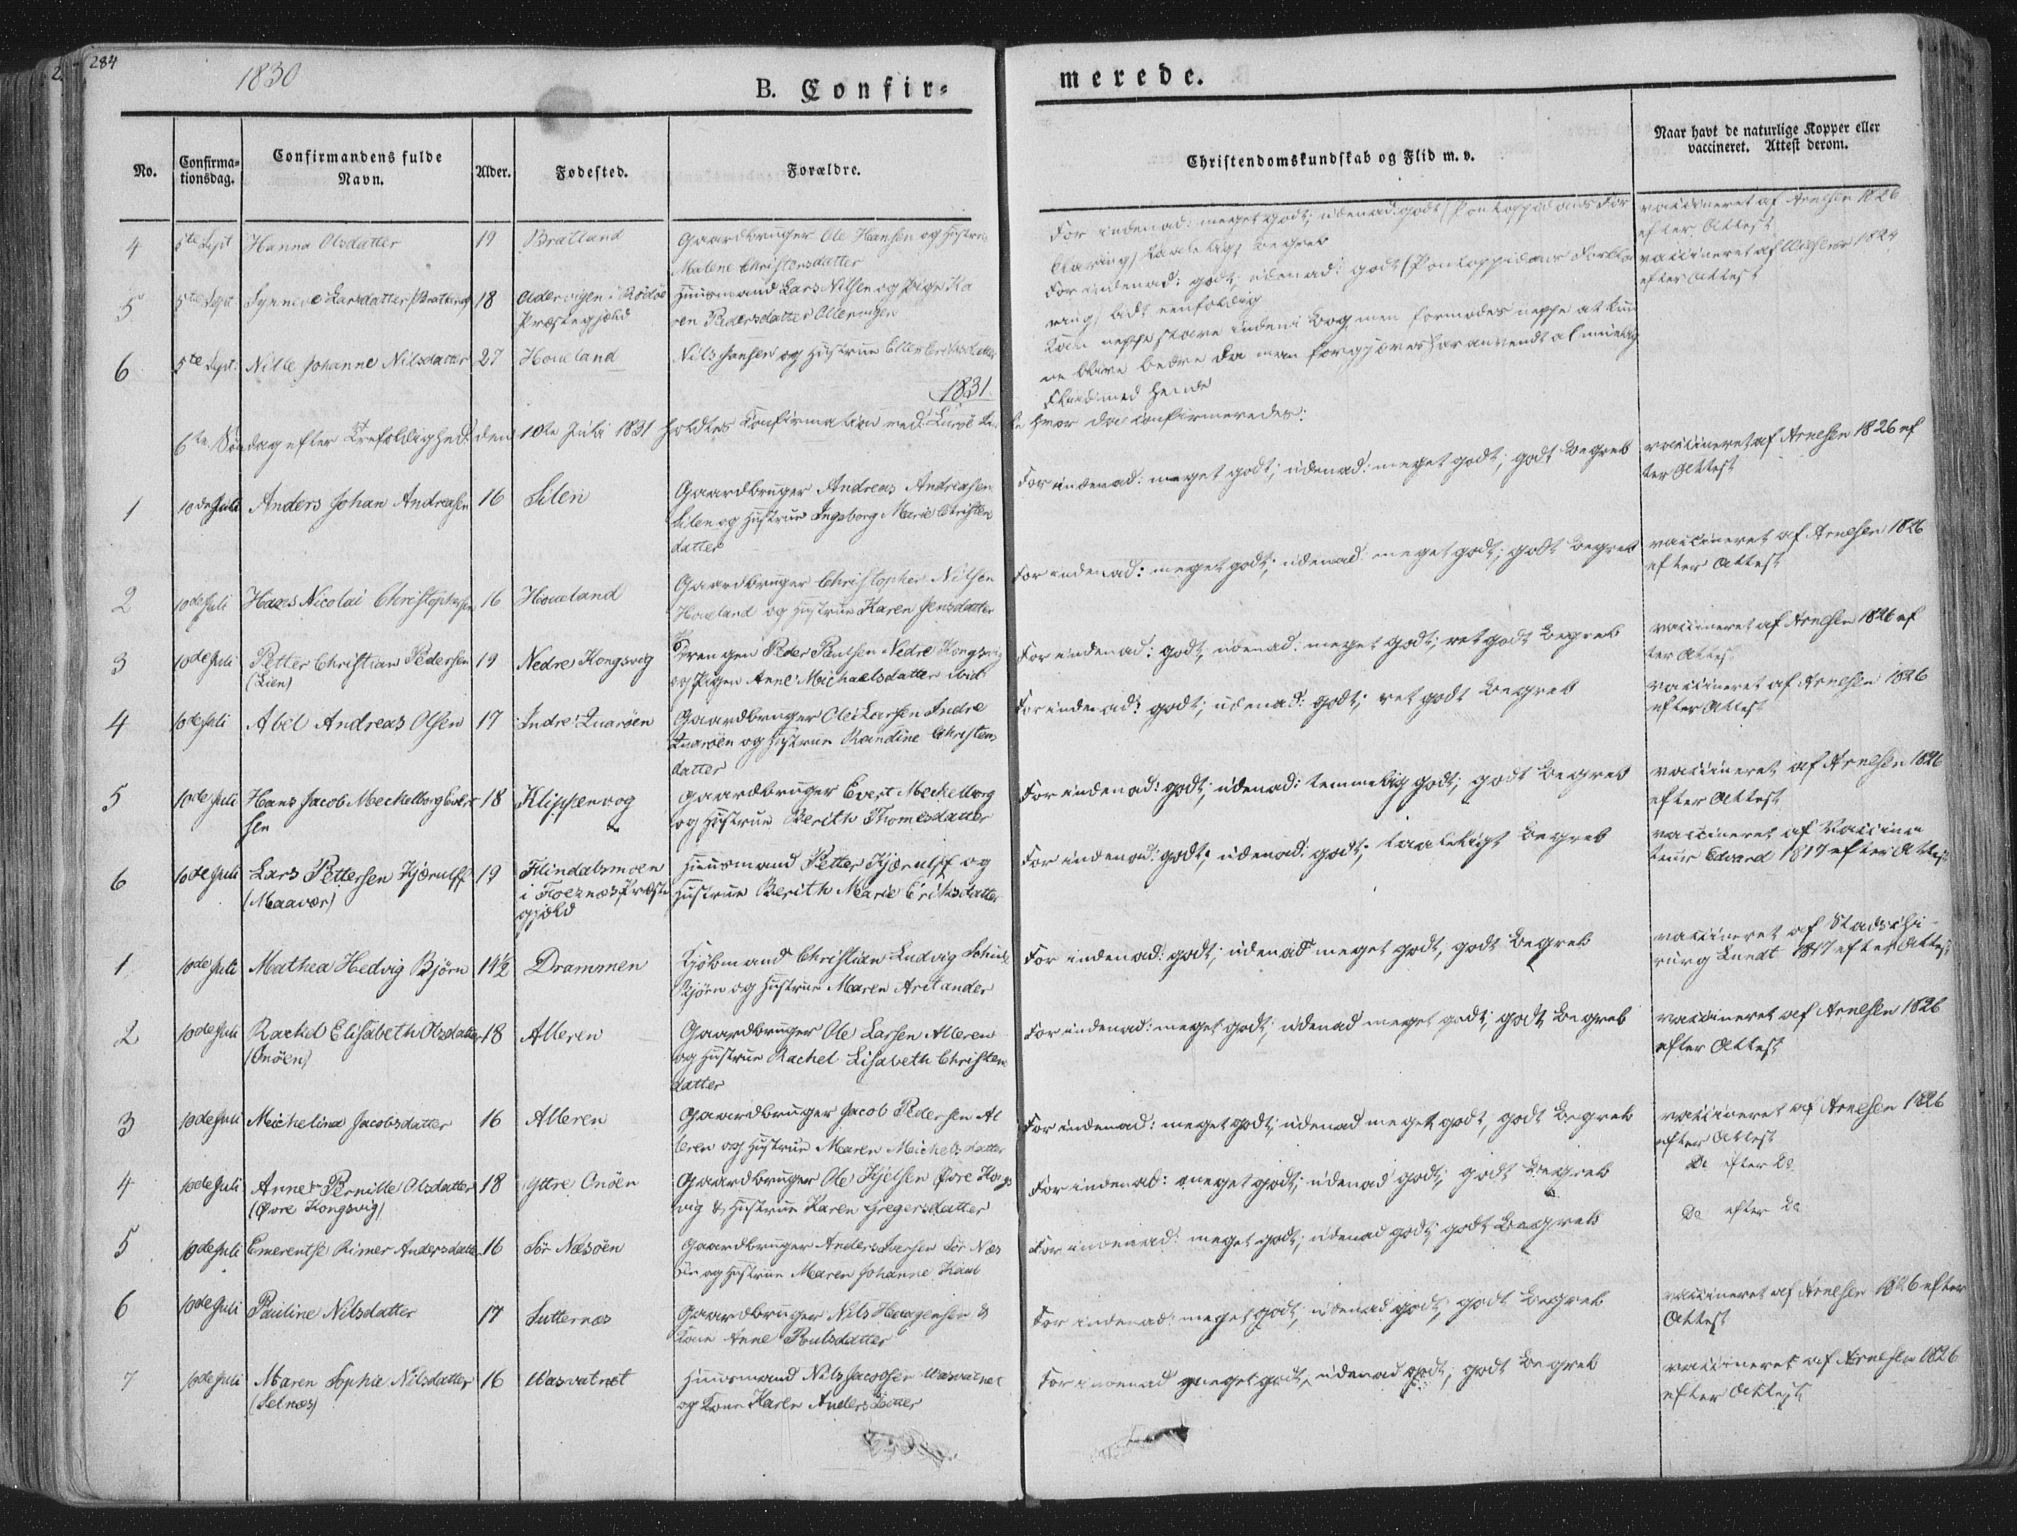 284
1830
B. Confir-
merede.
No.
Confirma-
tionsdag.
Confirmandens fulde
Navn.
Alder.
Fødested.
Forældre.
Christendomskundskab og Flid m. v.
Naar havt de naturlige Kopper eller
vaccineret. Attest derom.
4 5te Sept Hanna Olsdatter 19 Bratland Gaardbruger Ole Hansen og Hustrue
Malene Christensdatter
For indenad: meget godt; udenad: godt (Pontoppidans For
klaring) taaleligt Begreb
vaccineret af Arnesen 1826
efter Attest
5 5te Sept Synneve Larsdatter (Bratland) 18 i Rødøe
Præstegjeld
Huusmand Lars Nilsen og Pige Ka
ren Pedersdatter
For indenad: godt; udenad: godt (Pontoppidans Forkla
ring) lidt eenfoldig
vaccineret af 1824
efter Attest
6 5te Sept. Nille Johanne Nilsdatter 27 Houeland Nils Jensen og Hustrue Ellen Erichsdatter
Kan neppe stave indeni Bog, men formodes neppe at kun
ne blive bedre da man forgjeves har anvendt al muelig
Fliid med hende
1831.
6te Søndag efter Trefoldighed: den 10de Juli 1831 holdtes Confirmation ved Lurøe Kir
ke hvor da confirmeredes:
1 10de Juli Anders Johan Andreasen 16 Silen Gaardbruger Andreas Andreasen
Silen og Hustrue Ingeborg Marie Christen
datter
For indenad: meget godt; udenad: meget godt; godt Begreb
vaccineret af Arnesen 1826 ef
ter Attest
2 10de Juli Hans Nicolai Christophersen 16 Houeland Gaardbruger Christopher Nilsen
Houeland og Hustrue Karen Jensdatter
For indenad: meget godt; udenad meget godt; godt Begreb
vaccineret af Arnesen 1826
efter Attest
3 10de Juli Petter Christian Pedersen
(Lien)
19 Nedre Kongsvig Drengen Peder Poulsen Nedre Kongsvig
og Pigen Anne Michaelsdatter ibid
For indenad: godt; udenad: meget godt; ret godt Begreb
vaccineret af Arnesen 1826 ef
ter Attest
4 10de Juli Abel Andreas Olsen 17 Indre Quarøen Gaardbruger Ole Larsen Indre
Quarøen og Hustrue Randine Christens
datter
For indenad: godt; udenad: godt; ret godt Begreb
vaccineret af Arnesen 1826
efter Attest
5 10de Juli Hans Jacob Meckelborg Evert
sen
18 Klippenvog Gaardbruger Evert Meckelborg
og Hustrue Berith Thomesdatter
For indenad: godt; udenad: temmelig godt; godt Begreb
vaccineret af Arnesen 1826
efter Attest
6 10de Juli Lars Pettersen Kjærulff
(Maavær)
19 Flindalsmoen
i Foesnæs Præste
gjeld
Huusmand Petter Kjærulff og
Hustrue Berith Marie Erichsdatter
For indenad: godt; udenad: godt; taaleligt Begreb
vaccineret af Vaccina
teur Edvard 1817 efter Attest
1 10de Juli Mathea Hedvig Bjørn 14½ Drammen Kjøbmand Christian Ludvig
Bjørn og Hustrue Maren Arctander
For indenad: godt; udenad meget godt, godt Begreb
vaccineret af Stadschi
rurg Lundt 1817 efter Attest
2 10de Juli Rachel Elisabeth Olsdatter
(Onøen)
18 Alleren Gaardbruger Ole Larsen Alleren
og Hustrue Rachel Lisabeth Christen
datter
For indenad: meget godt; udenad meget godt; godt Begreb
vaccineret af Arnesen 1826
efter Attest
3 10de Juli Michelina Jacobsdatter 16 Alleren Gaardbruger Jacob Pedersen Al
leren og Hustrue Maren Michelsdatter
For indenad: meget godt; udenad meget godt, godt Begreb
vaccineret af Arnesen 1826
efter Attest
4 10de Juli Anne Pernille Olsdatter
(Øvre Kongsvig)
18 Yttre Onøen Gaardbruger Ole Kjelsen Øvre Kongs
vig & Hustrue Karen Gregersdatter
For indenad: meget godt; udenad godt; godt Begreb
Do efter Do
5 10de Juli Emerentse Rimer Andersdatter 16 Sør Næsøen Gaardbruger Anders Larsen Sør Næs
øen og Hustrue Maren Johanne
For indenad: meget godt; udenad godt; godt Begreb
Do efter Do
6 10de Juli Pauline Nilsdatter 17 Sutternæs Gaardbruger Nils Haagensen &
Kone Anne Poulsdatter
For indenad: meget godt; udenad godt; godt Begreb
vaccineret af Arnesen 1826 efter
Attest
7 10de Juli Maren Sophia Nilsdatter
(Selnæs)
16 Wasvatnet Huusmand Nils Jacobsen Wasvatnet
og Kone Karen Andersdatter
For indenad meget godt, udenad godt; godt Begreb
vaccineret af Arnesen 1826
efter Attest